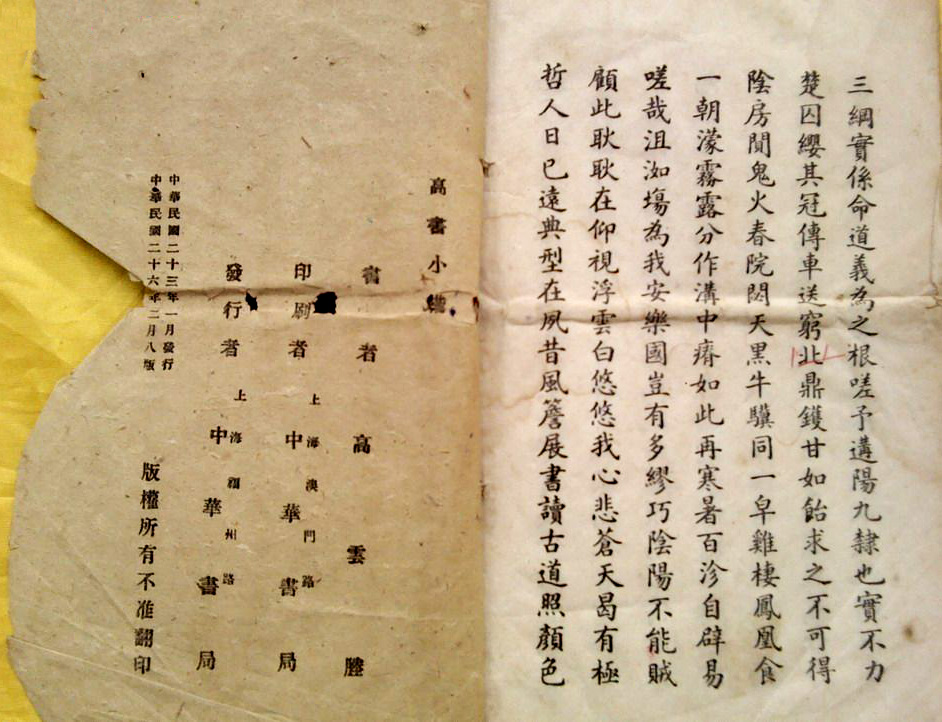 三綱實係命道義為之根嗟予遘陽九隸也實不力
楚囚纓其冠傳車送窮北鼎鑊甘如飴求之不可得
陰房閴鬼火春院閟天黑牛驥同一皁雞棲鳳凰食
一朝濛霧露分作溝中瘠如此再寒暑百沴自辟易
嗟哉沮洳場為我安樂國豈有多繆巧陰陽不能賊
顧此耿耿在仰視浮雲白悠悠我心悲蒼天曷有極
哲人日已遠典型在夙昔風簷展書讀古道照顏色
高書小楷
書者 高雲塍
印刷者 上海澳門路 中華書局
發行者 上海福州路 中華書局
中華民國二十三年一月發行
中華民國二十六年二月八版
版權所有不准翻印